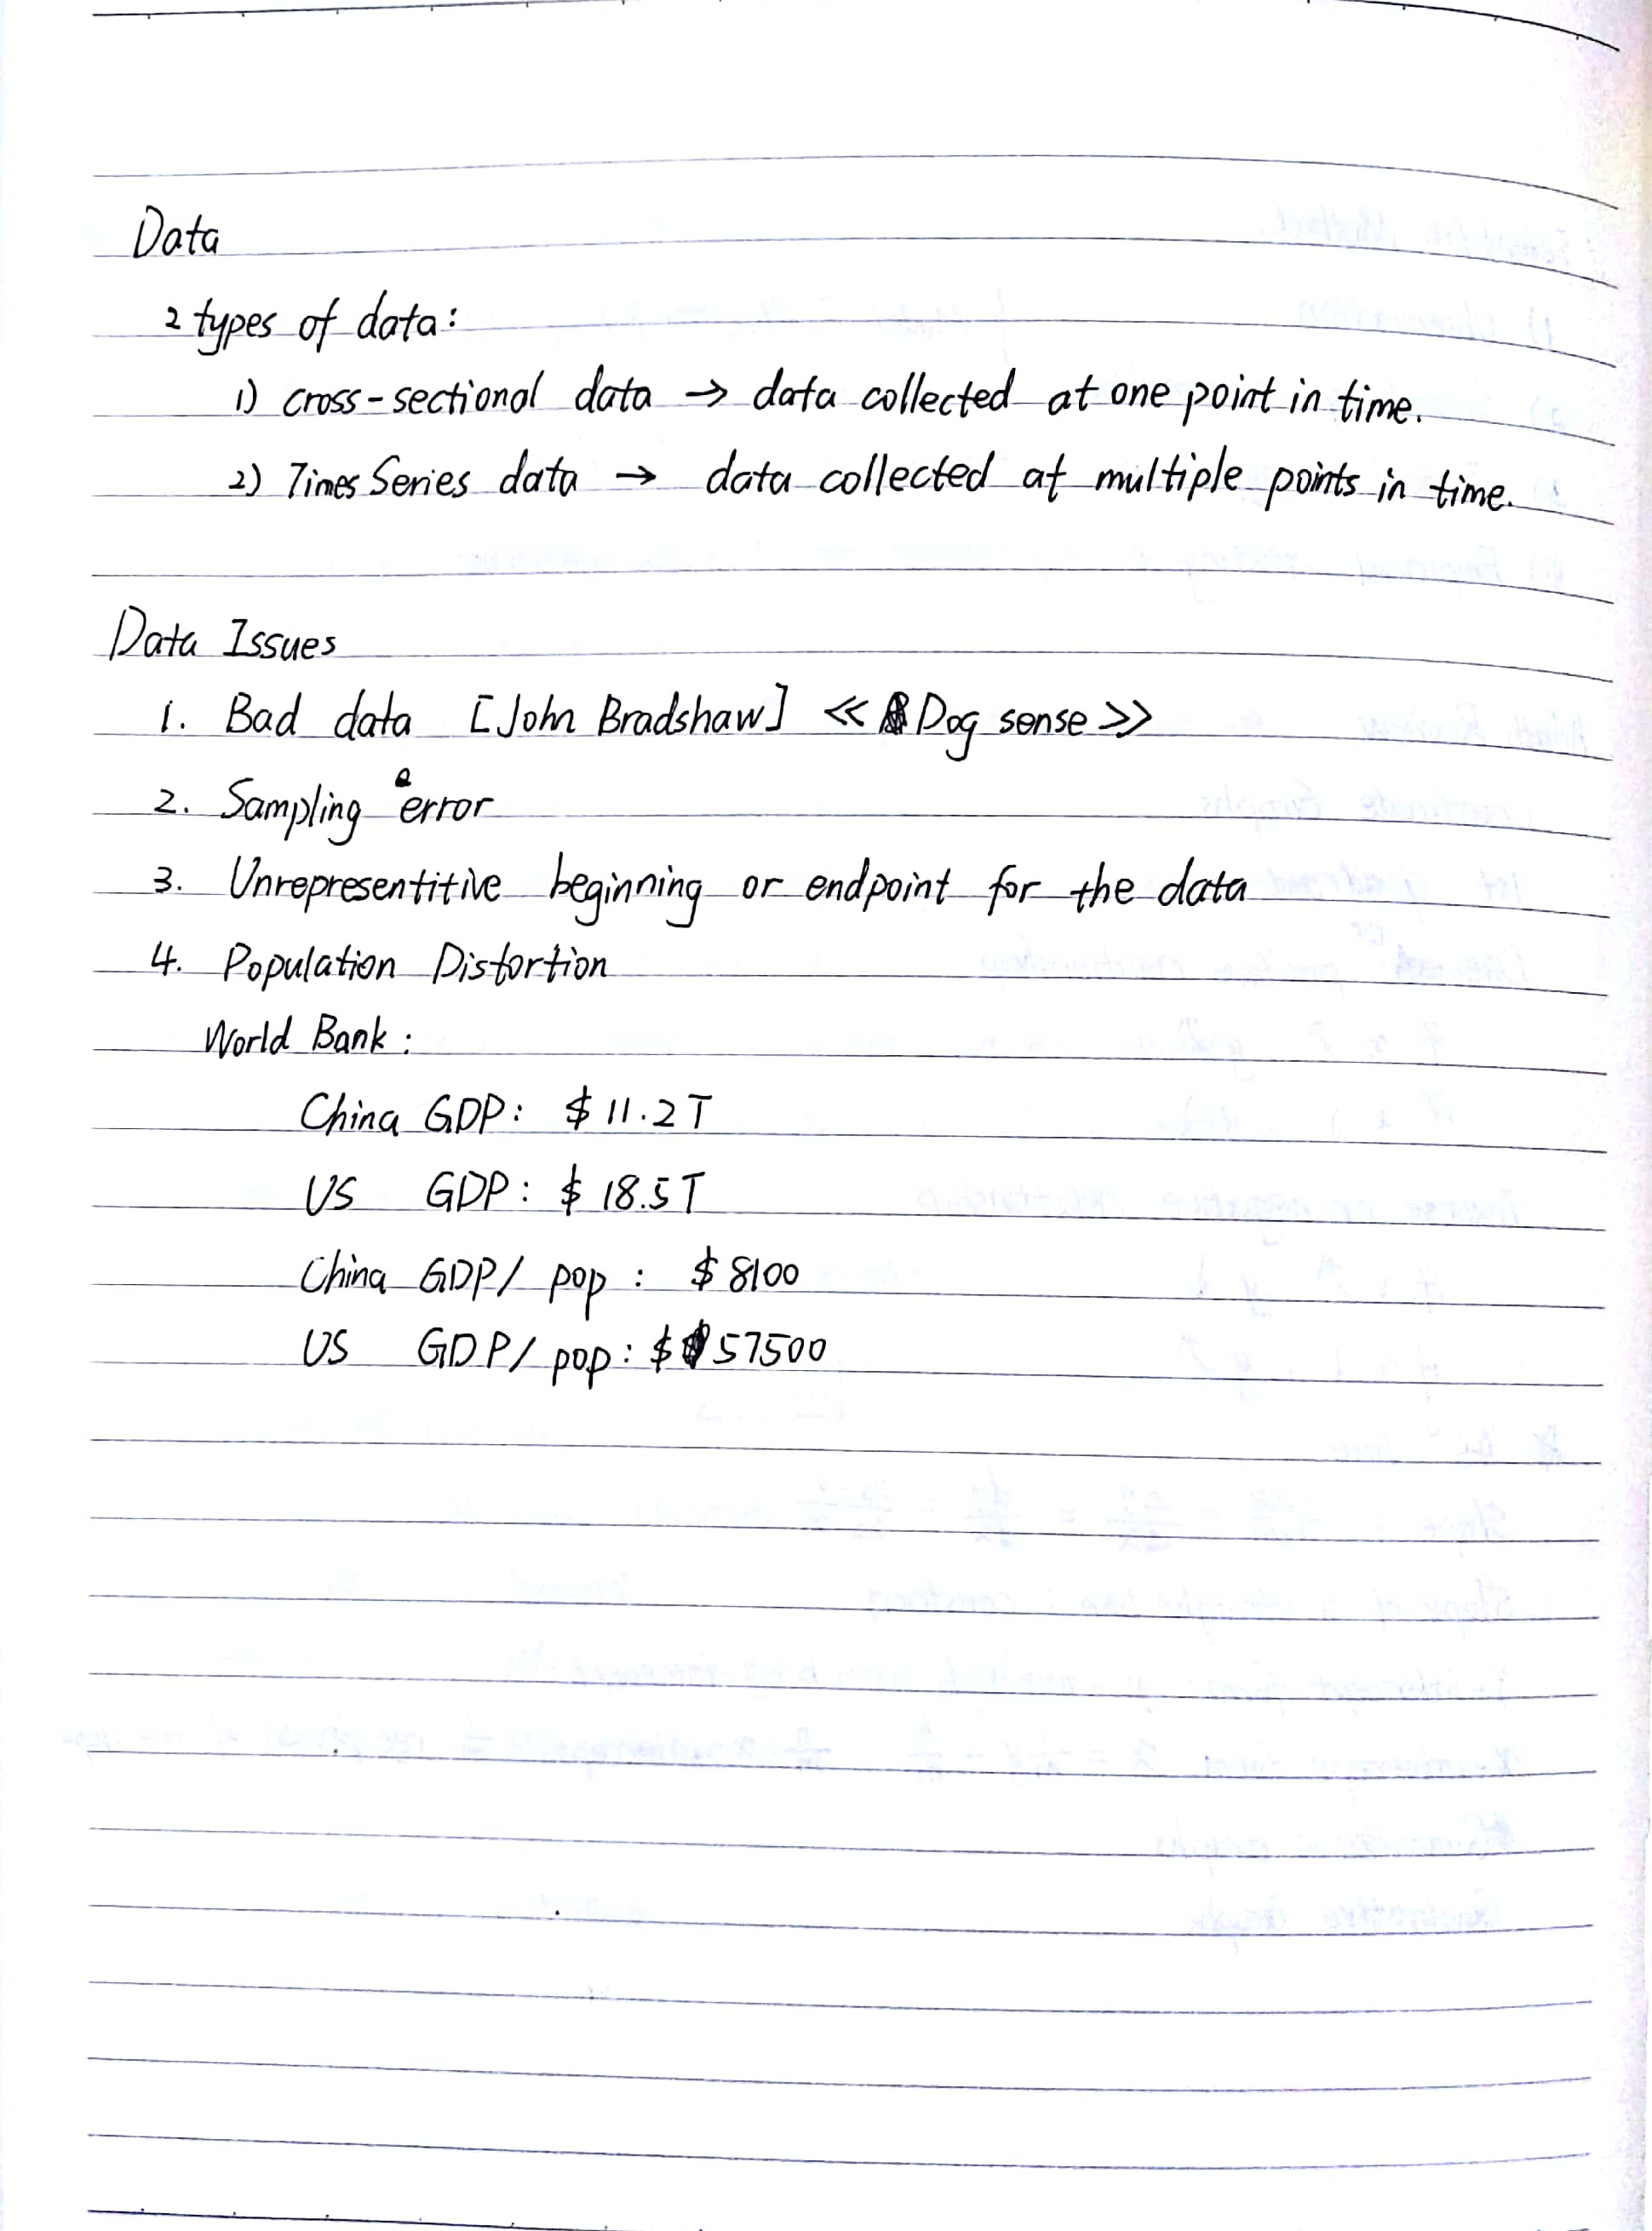 Data
2 types of data:
1) cross-sectional data → data collected at one point in time.
2) Times Series data → data collected at multiple points in time.
Data Issues
1. Bad data [John Bradshaw] << Dog sense >>
2. Sampling error
3. Unrepresentitive beginning or endpoint for the data
4. Population Distortion
World Bank :
China GDP: $ 11.2T
US GDP: $ 18.5T
China GDP/ pop : $ 8100
US GDP/ pop: $ 57500